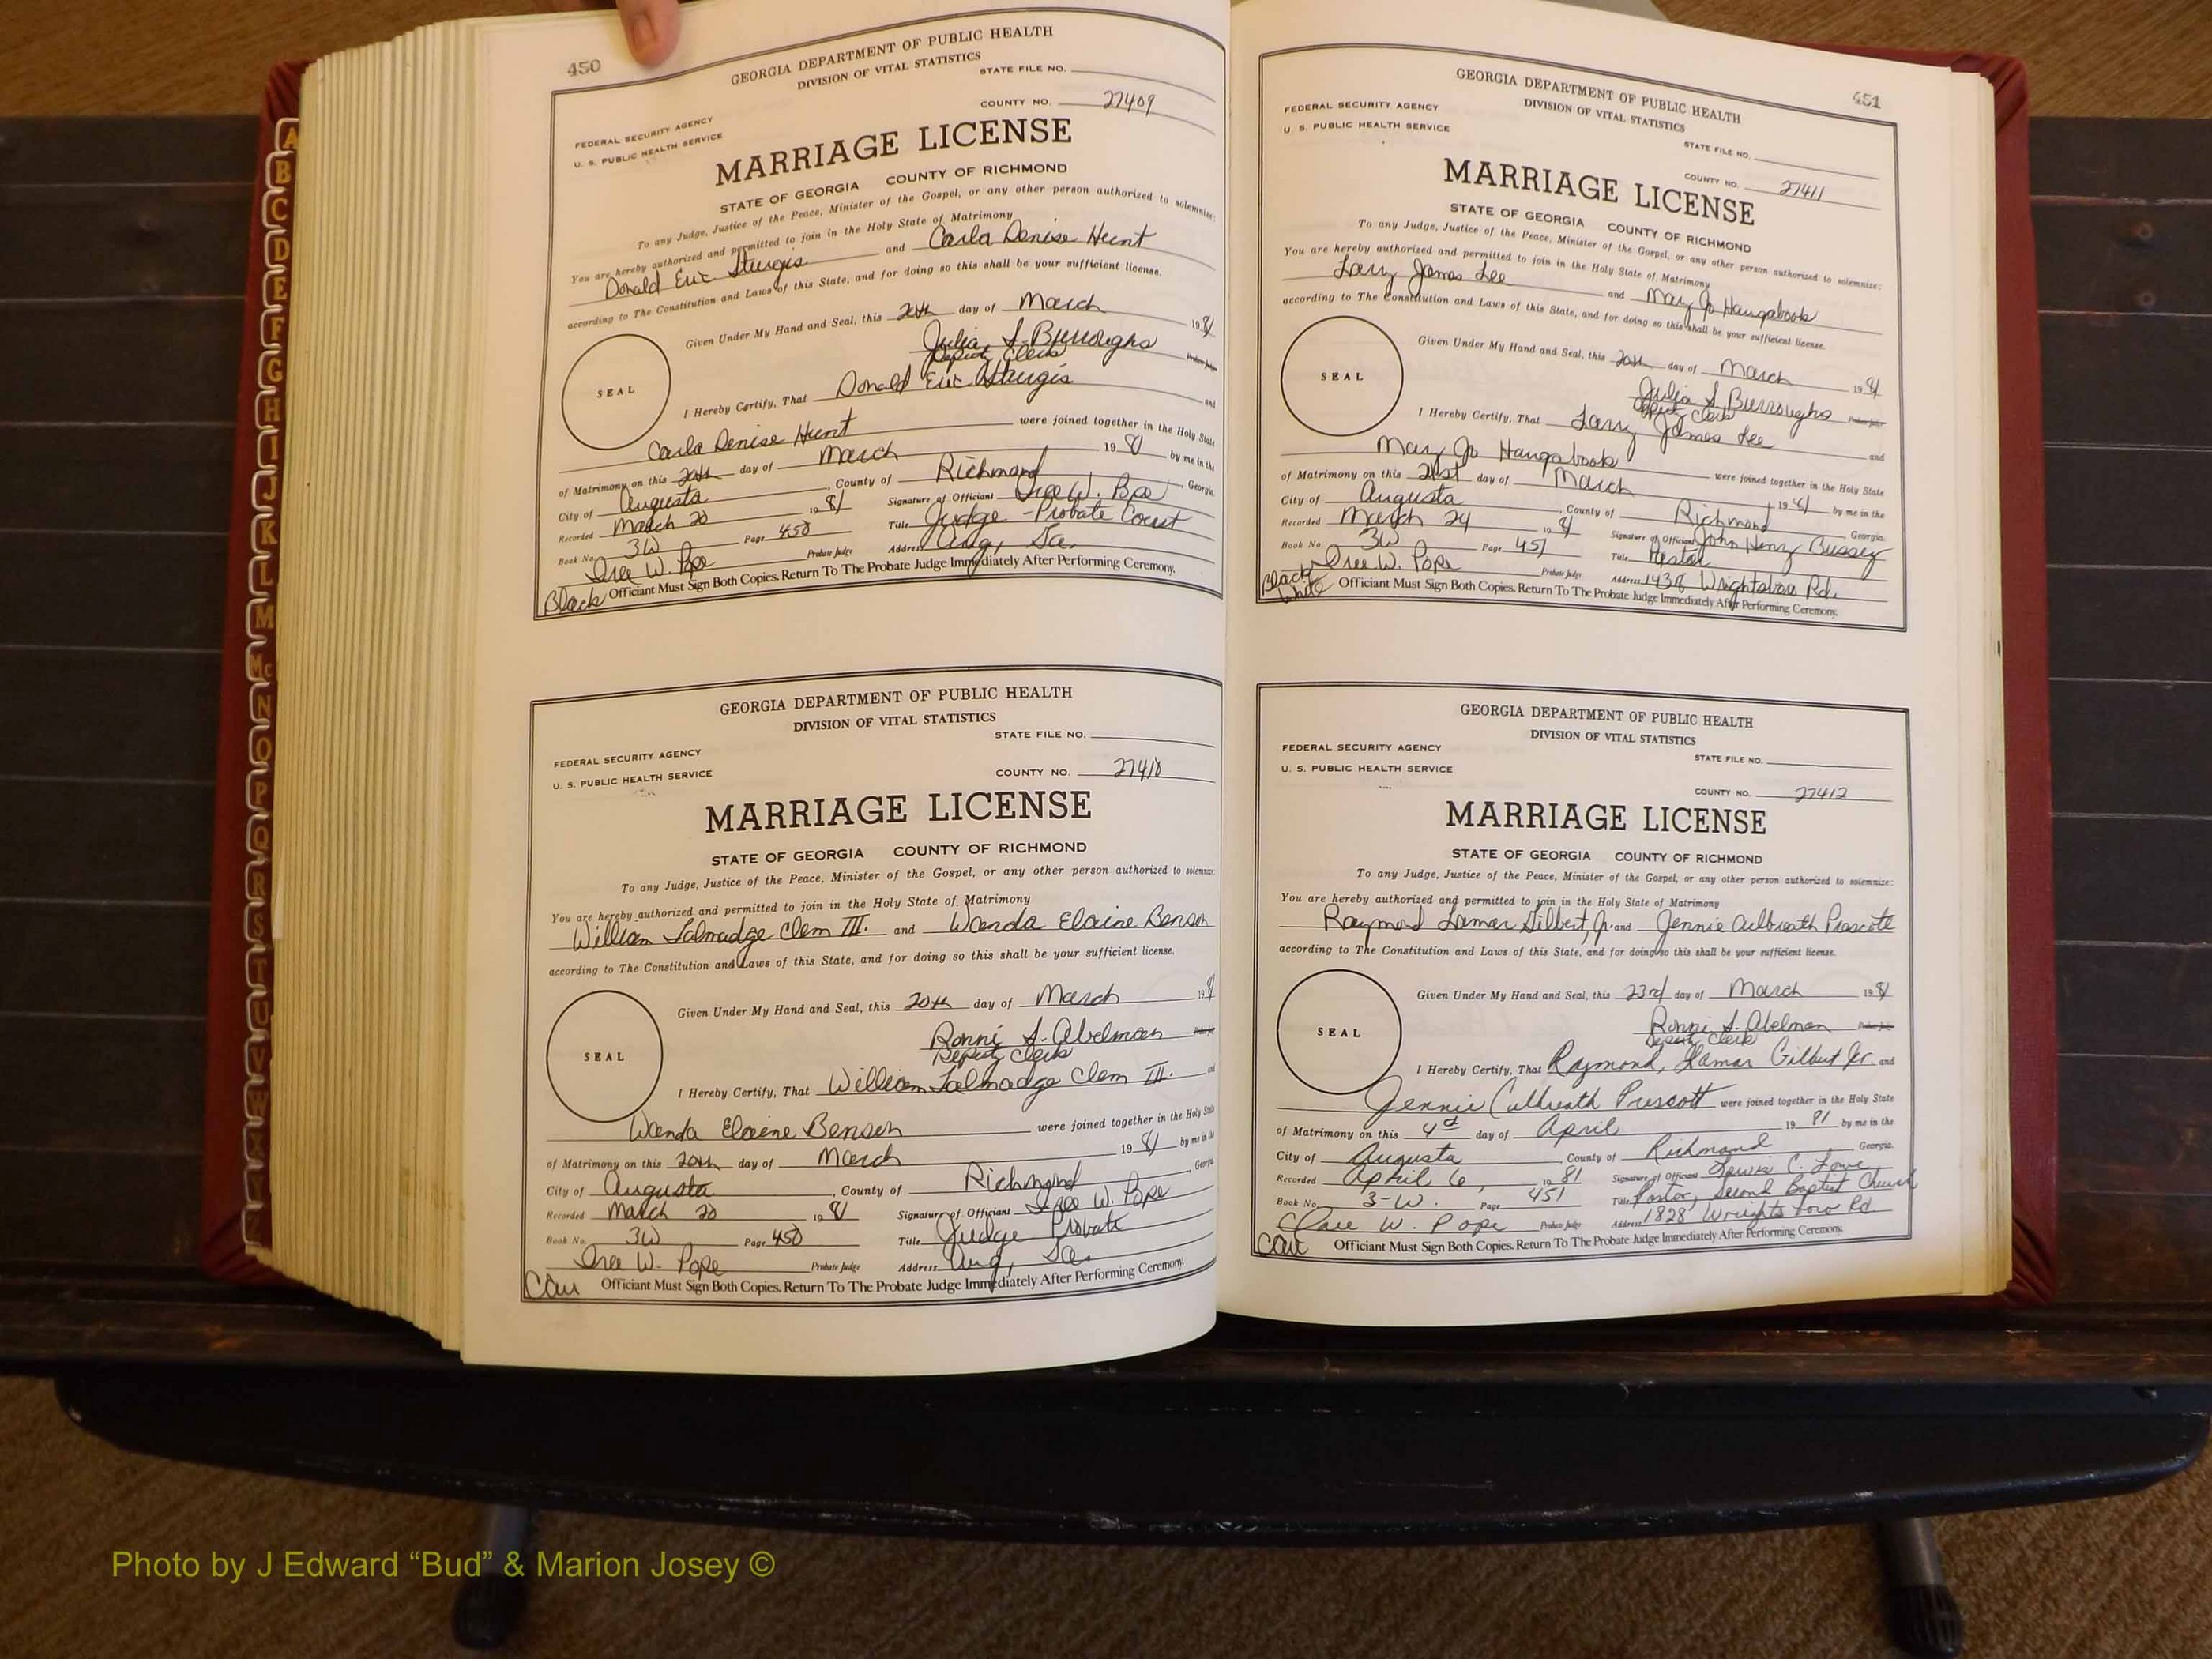 450
GEORGIA DEPARTMENT OF PUBLIC HEALTH
DIVISION OF VITAL STATISTICS
STATE FILE NO.
COUNTY NO. 27409
FEDERAL SECURITY AGENCY
U. S. PUBLIC HEALTH SERVICE
MARRIAGE LICENSE
STATE OF GEORGIA COUNTY OF RICHMOND
To any Judge, Justice of the Peace, Minister of the Gospel, or any other person authorized to solemnize:
You are hereby authorized and permitted to join in the Holy State of Matrimony
Donald Eric Sturgis and Carla Denise Hunt
according to The Constitution and Laws of this State, and for doing so this shall be your sufficient license.
Given Under My Hand and Seal, this 20th day of March 1981
Julia S. Burroughs
Deputy Clerk
SEAL
I Hereby Certify, That Donald Eric Sturgis and
Carla Denise Hunt were joined together in the Holy State
of Matrimony on this 20th day of March 1981 by me in the
City of Augusta, County of Richmond, Georgia.
Recorded March 20 1981 Signature of Officiant W. Pope
Book No. 3W Page 450 Title Judge - Probate Court
W. Pope Probate Judge Address Aug, Ga.
Black Officiant Must Sign Both Copies. Return To The Probate Judge Immediately After Performing Ceremony.
GEORGIA DEPARTMENT OF PUBLIC HEALTH
DIVISION OF VITAL STATISTICS
STATE FILE NO.
FEDERAL SECURITY AGENCY
U. S. PUBLIC HEALTH SERVICE
COUNTY NO. 27410
MARRIAGE LICENSE
STATE OF GEORGIA COUNTY OF RICHMOND
To any Judge, Justice of the Peace, Minister of the Gospel, or any other person authorized to solemnize:
You are hereby authorized and permitted to join in the Holy State of Matrimony
William Talmadge Clem III. and Wanda Elaine Benson
according to The Constitution and Laws of this State, and for doing so this shall be your sufficient license.
Given Under My Hand and Seal, this 20th day of March 1981
Ronni S. Abelman
Deputy Clerk
SEAL
I Hereby Certify, That William Talmadge Clem III. and
Wanda Elaine Benson were joined together in the Holy State
of Matrimony on this 20th day of March 1981 by me in the
City of Augusta, County of Richmond Georgia
Recorded March 20 1981 Signature of Officiant W. Pope
Book No. 3W Page 450 Title Judge Probate
W. Pope Probate Judge Address Aug, Ga.
Cau Officiant Must Sign Both Copies. Return To The Probate Judge Immediately After Performing Ceremony.
451
GEORGIA DEPARTMENT OF PUBLIC HEALTH
DIVISION OF VITAL STATISTICS
FEDERAL SECURITY AGENCY
U. S. PUBLIC HEALTH SERVICE
STATE FILE NO.
COUNTY NO. 27411
MARRIAGE LICENSE
STATE OF GEORGIA COUNTY OF RICHMOND
To any Judge, Justice of the Peace, Minister of the Gospel, or any other person authorized to solemnize:
You are hereby authorized and permitted to join in the Holy State of Matrimony
Larry James Lee and Mary Jo Haugabook
according to The Constitution and Laws of this State, and for doing so this shall be your sufficient license.
Given Under My Hand and Seal, this 20th day of March 1981
Julia S. Burroughs
Deputy Clerk
SEAL
I Hereby Certify, That Larry James Lee and
Mary Jo Haugabook were joined together in the Holy State
of Matrimony on this 21st day of March 1981 by me in the
City of Augusta, County of Richmond Georgia.
Recorded March 24 1981 Signature of Officiant John Henry Bussey
Book No. 3W Page 451 Title Pastor
W. Pope Probate Judge Address 1438 Wrightsboro Rd.
Black
White
Officiant Must Sign Both Copies. Return To The Probate Judge Immediately After Performing Ceremony.
GEORGIA DEPARTMENT OF PUBLIC HEALTH
DIVISION OF VITAL STATISTICS
FEDERAL SECURITY AGENCY
U. S. PUBLIC HEALTH SERVICE
STATE FILE NO.
COUNTY NO. 27412
MARRIAGE LICENSE
STATE OF GEORGIA COUNTY OF RICHMOND
To any Judge, Justice of the Peace, Minister of the Gospel, or any other person authorized to solemnize:
You are hereby authorized and permitted to join in the Holy State of Matrimony
Raymond Lamar Gilbert, Jr. and Jennie Culbreath Prescott
according to The Constitution and Laws of this State, and for doing so this shall be your sufficient license.
Given Under My Hand and Seal, this 23rd day of March 1981
Ronni S. Abelman
Deputy Clerk
SEAL
I Hereby Certify, That Raymond, Lamar Gilbert Jr. and
Jennie Culbreath Prescott were joined together in the Holy State
of Matrimony on this 4th day of April 1981 by me in the
City of Augusta, County of Richmond Georgia.
Recorded April 6, 1981 Signature of Officiant Lewis C. Lowe
Book No. 3-W. Page 451 Title Pastor, Second Baptist Church
W. Pope Probate Judge Address 1828 Wrightsboro Rd
Cau Officiant Must Sign Both Copies. Return To The Probate Judge Immediately After Performing Ceremony.
A
B
C
D
E
F
G
H
I
J
K
L
M
Mc
N
O
P
Q
R
S
T
U
V
W
X
Y
Z
Photo by J Edward “Bud” & Marion Josey ©